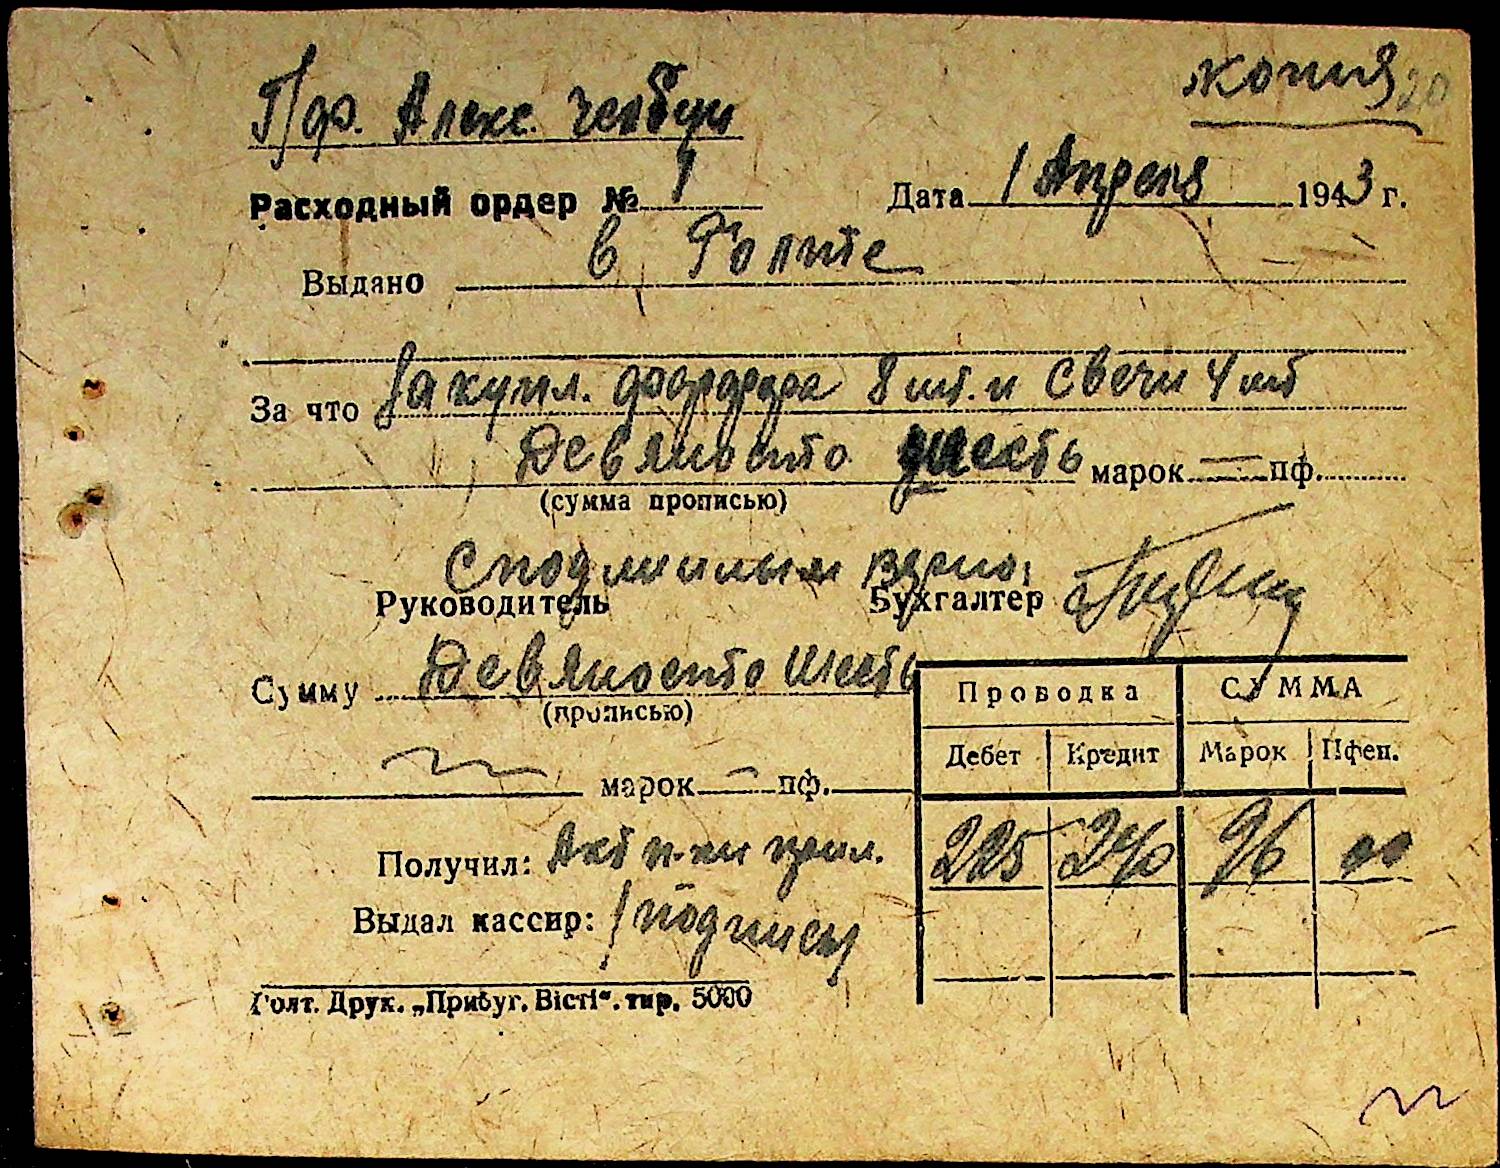 копия 20
Пр. Алекс. церкви
Расходный ордер № 1 Дата 1 Апреля 1943 г.
Выдано в Голте
За что Закупл. 8 шт. и свечи 4 шт
Девяносто шесть марок — пф.
(сумма прописью)
С подлинным верно:
Руководитель Бухгалтер
Сумму Девяносто шесть
(прописью)
марок — пф.
Проводка СУММА
Дебет Кредит Марок Пфен.
225 240 96 00
Получил: Акт прил.
Выдал кассир: /подписи
Голт. Друк. „Прибуг. Вісті“. тир. 5000